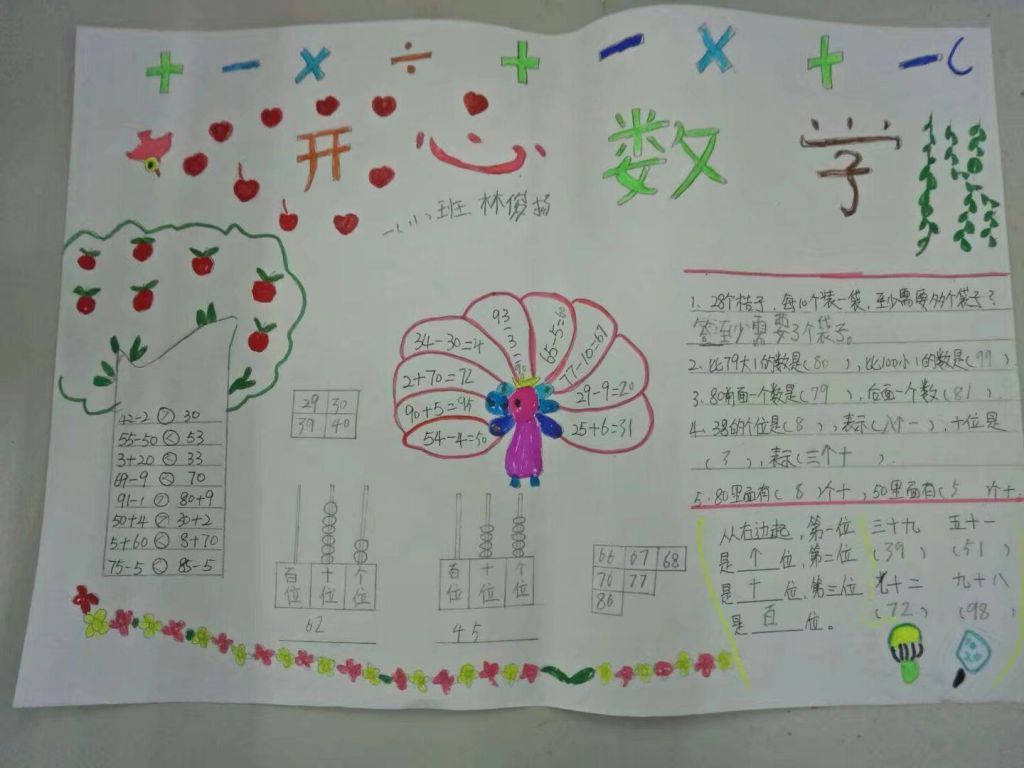 + - × ÷ + - × + -
开心数学
班 林俊扬
42-2 > 30
55-50 < 53
3+20 < 33
69-9 < 70
91-1 > 80+9
50+4 > 30+2
5+60 < 8+70
75-5 < 85-5
29 30
39 40
54-4=50
90+5=95
2+70=72
34-30=4
93-3=90
65-5=60
77-10=67
29-9=20
25+6=31
百位 十位 个位
62
百位 十位 个位
45
66 67 68
76 77
86
1、28个桔子,每10个装一袋,至少需要多少个袋子?
答至少需要3个袋子。
2、比79大1的数是(80),比100小1的数是(99)
3、80前面一个数是(79),后面一个数(81).
4、38的个位是(8),表示(八个一),十位是
(3),表示(三个十).
5、80里面有(8)个十,50里面有(5)个十.
从右边起,第一位
是 个 位,第二位
是 十 位,第三位
是 百 位。
三十九 五十一
(39) (51)
七十二 九十八
(72) (98)